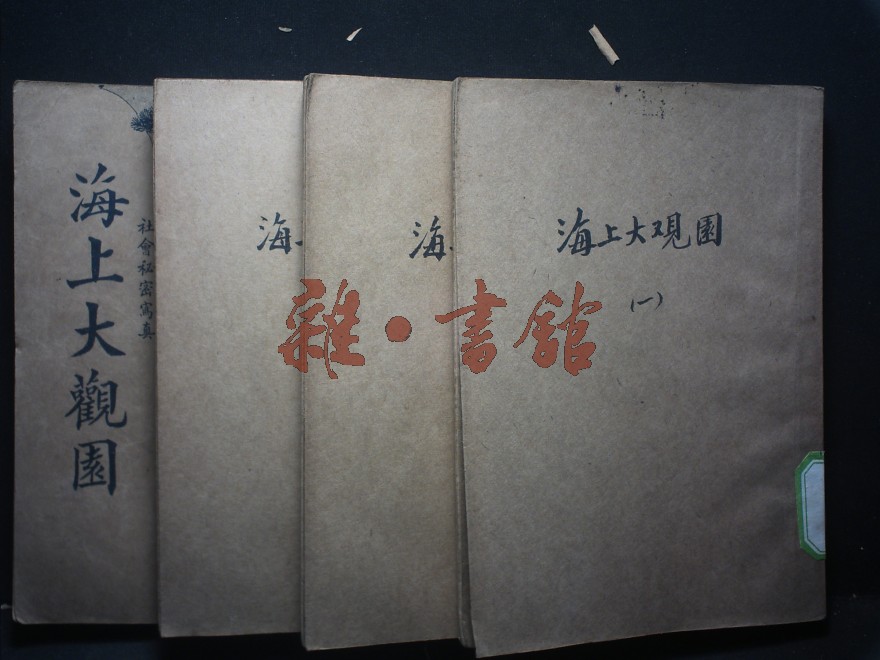 海上大觀園
社會秘密寫真
海上
海上
海上大观園
(一)
雜·書館